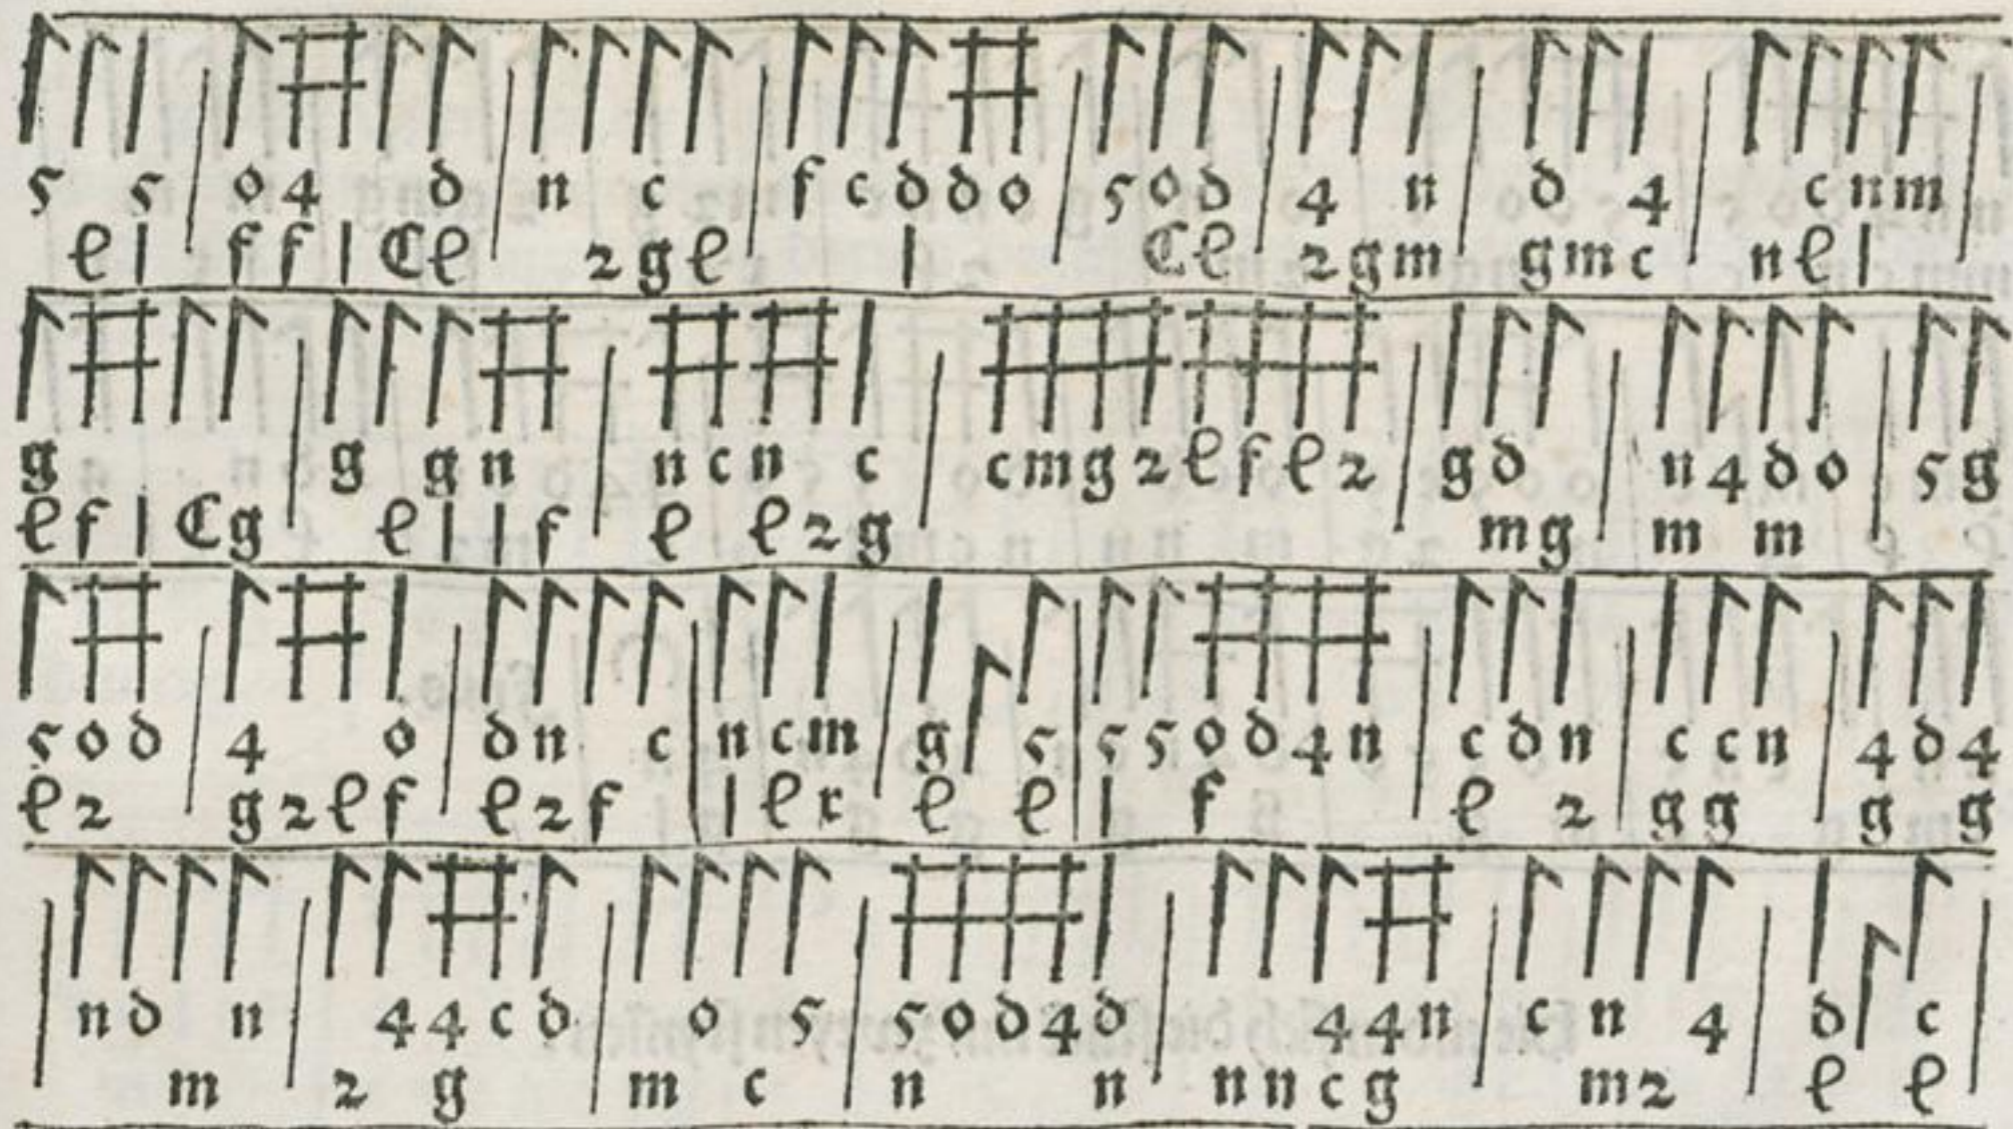 5 5 | o 4 d | n c | f c d d o | 5 o d | 4 n | d 4 | c n m |
e l | f f l C e | 2 g e | l | C e | 2 g m | g m c | n e l |
g | g g n | n c n c | c m g 2 e f e 2 | g d | n 4 d o | 5 g
e f l C g | e l l f | e e 2 g | | m g | m m |
5 o d | 4 o | d n c | n c m | g 5 | 5 5 o d 4 n | c d n | c c n | 4 d 4
e 2 | g 2 e f | e 2 f | l e r | e e | l f | e 2 | g g | g g
| n d n | 4 4 c d | o 5 | 5 o d 4 d | 4 4 n | c n 4 | d c |
| m | 2 g | m c | n n | n n c g | m 2 | e e |